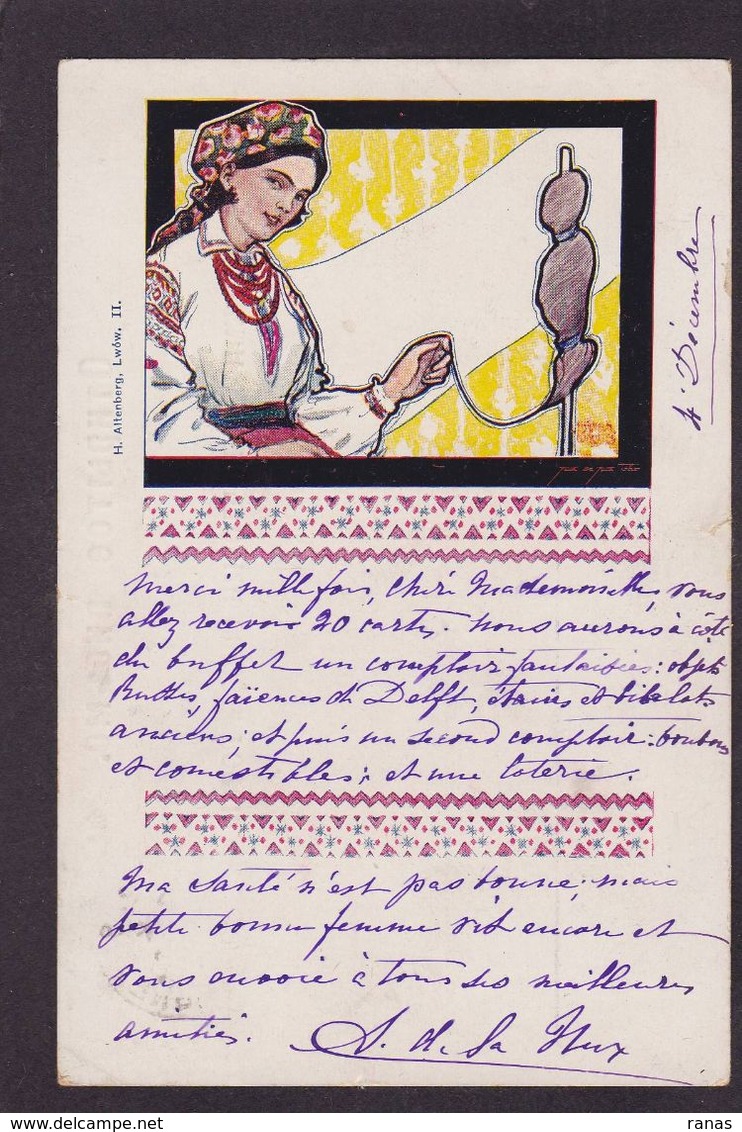 H. Altenberg, Lwów. II.
4 Décembre
Merci mille fois, chère Mademoiselle, vous
allez recevoir 20 cartes. Nous aurons à côté
du buffet un comptoir fantaisies: objets
faïences de Delft, étains et bibelots
anciens; et puis un second comptoir: bonbons
et comestibles; et une loterie.
Ma santé n'est pas bonne; mais
petite bonne femme vit encore et
vous envoie à tous ses meilleures
amitiés. de la
ranas